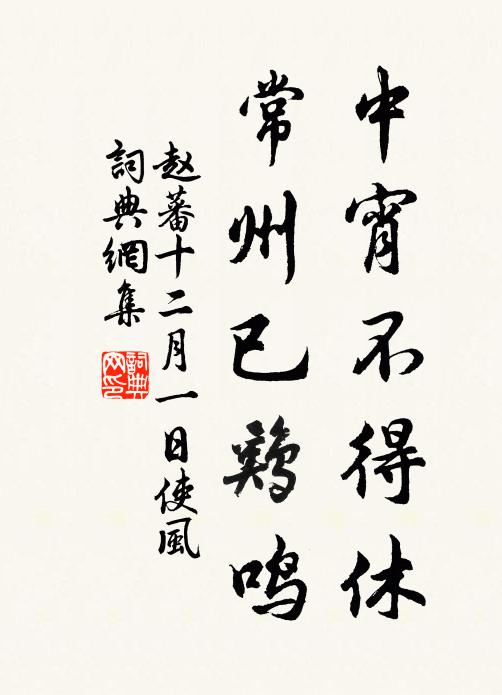 中宵不得休
常州已鷄鸣
赵蕃十二月一日使風
詞典網集
詞典
网印